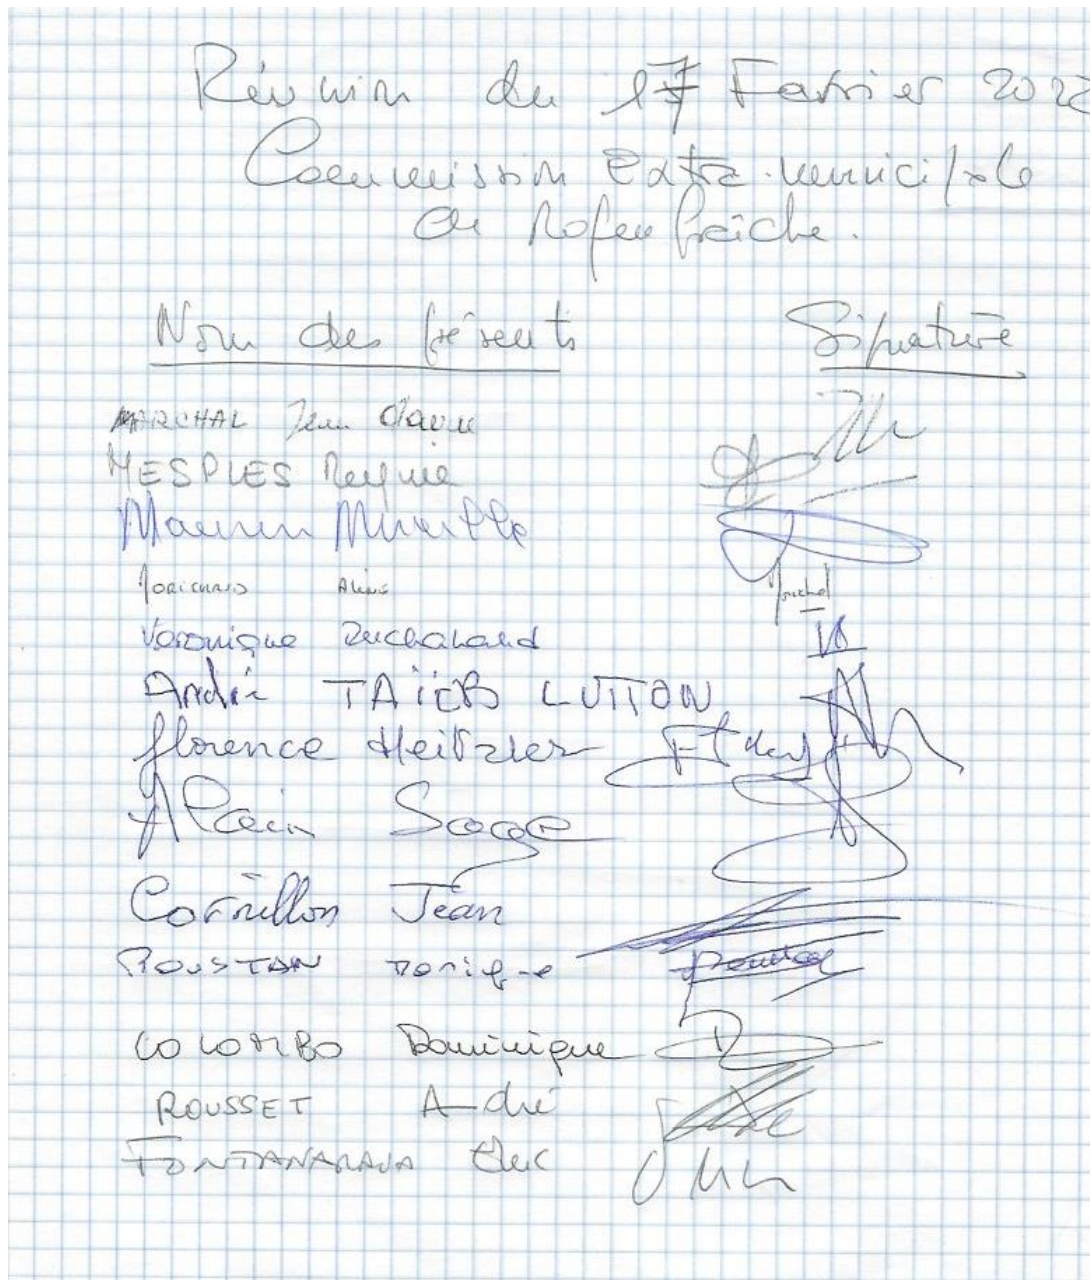 Réunion du 17 Fevrier 202
Commission Extra-municipale
de Rofen fraîche.
Nom des présents Signature
MARCHAL Jean Claude
MESPLES Regine
Maurin Mireille
Aline
Veronique
André TAÏEB LUTTON
florence Heitzler
Alain Sage
Cornillon Jean
ROUSTAN
COLOMBO Dominique
ROUSSET André